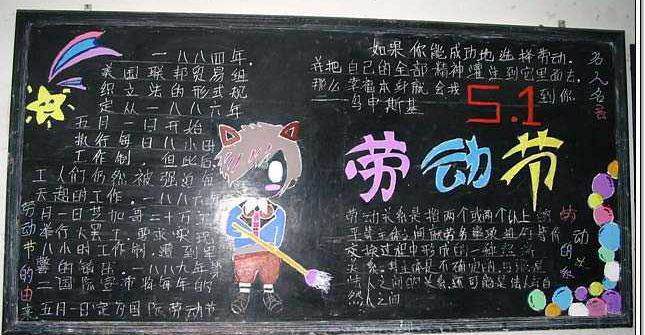 一八八四年，
美国联邦贸易组
织立法的形式规
定从一八八六年
五月一日开始
执行每日八小时
工作制，但此后
工人们仍然被强迫每
天超的工作，一八八六年
月一日芝加哥二十万
举行大罢工，要求实现
八小时工作制，遭到
警的镇压，一八八九年第
二国际宣布将每年的
五月一日定为国际劳动节
劳动节的由来
如果你能成功地选择劳动，
并把自己的全部精神灌注到它里面去，
那么幸福本身就会找到你
——乌申斯基
名人名言
5.1
劳动节
劳动关系是指两个或两个以上的
交换过程中形成的一种经济
关系，其主体是不确定的，可能是
法人之间的关系，还可能是法人与自
然人之间
劳动的关系